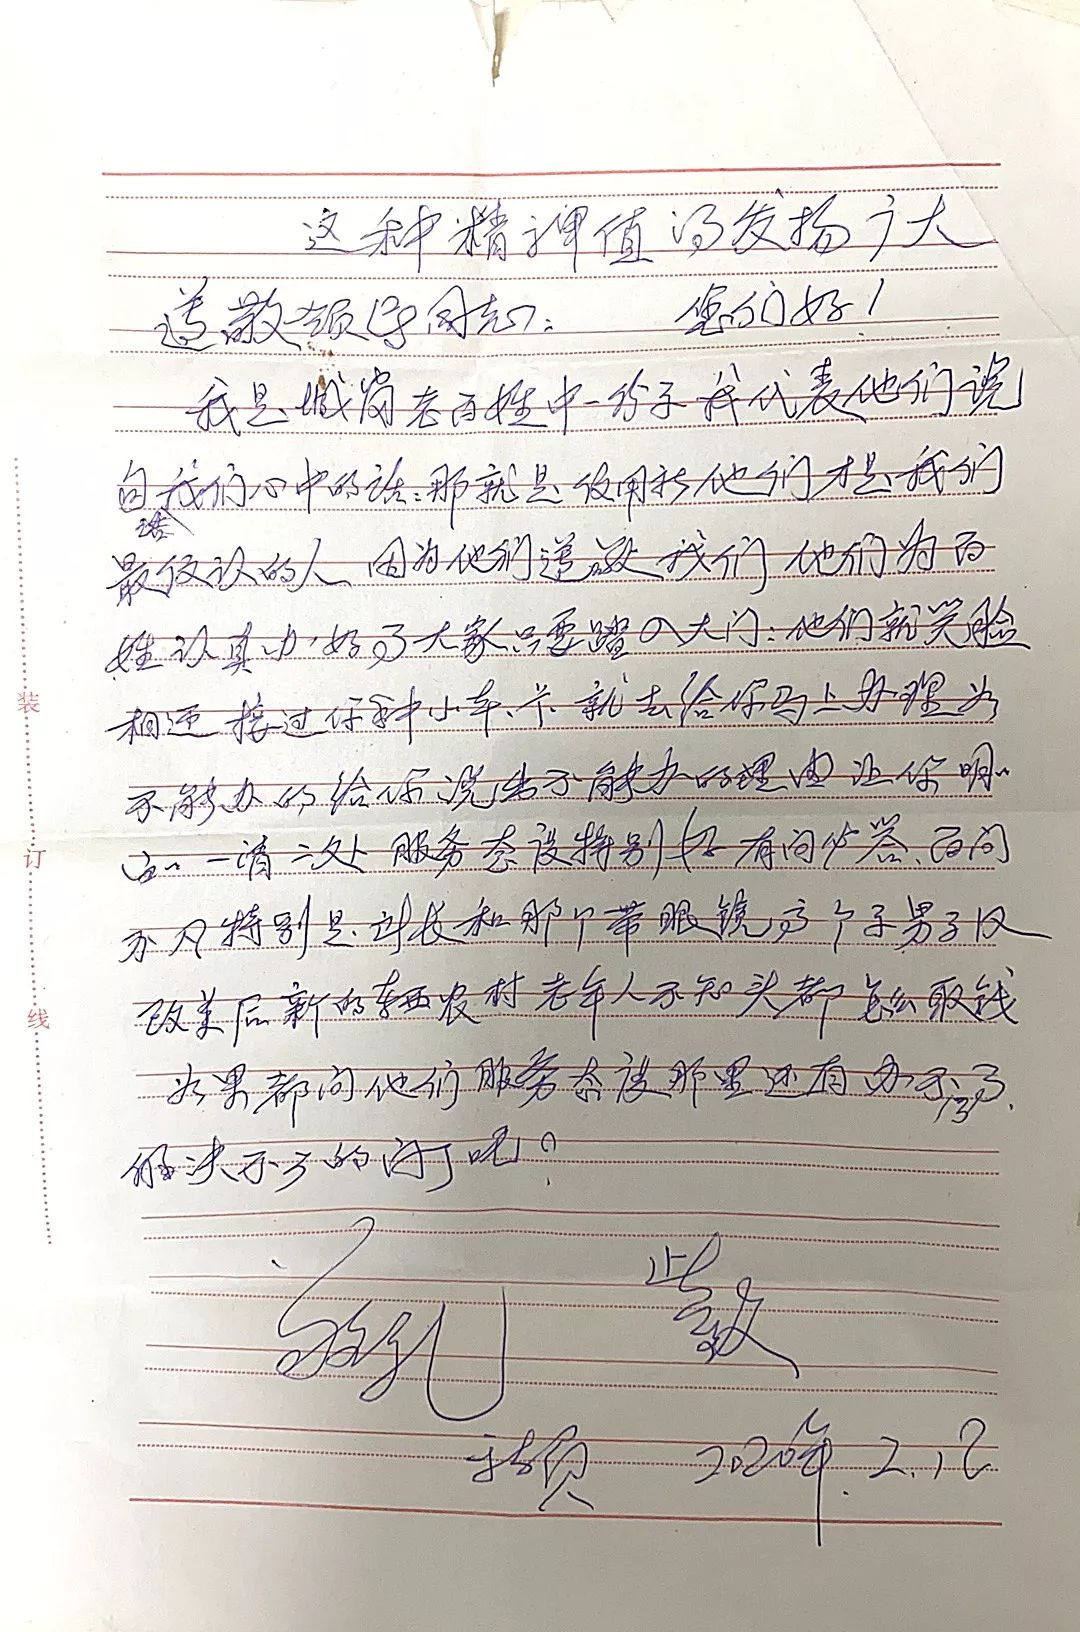 这种精神值得发扬广大
尊敬领导同志: 您们好!
我是城岗老百姓中一份子我代表他们说
句我们心中的话:那就是信用社他们才是我们
最信认的人因为他们尊敬我们他们为百
姓认真办好了大家只要踏入大门:他们就笑脸
相迎接过你手中小本、卡就去给你马上办理为
不能办的给你说出不能办的理由让你明
白一请二处服务态度特别好有问必答、百问
不凡特别是社长和那个带眼镜高个子男子汉
改革后新的东西农村老年人不知头都怎么取钱
如果都问他们服务态度那里还有办不了
解决不了的问了呢?
敬礼 此致
2020年.2.18
装
订
线